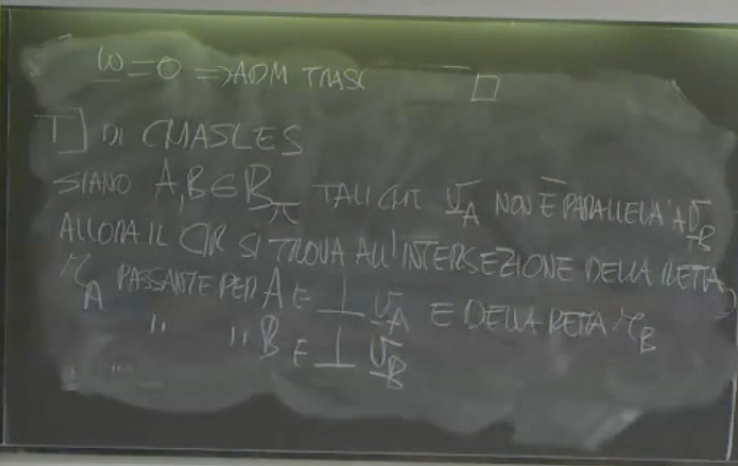 ω=0 ⇒ADM TRASL □
T] DI CHASLES
SIANO A,B∈B_π TALI CHE v_A NON È PARALLELA A v_B
ALLORA IL CIR SI TROVA ALL'INTERSEZIONE DELLA RETTA
r_A PASSANTE PER A E ⊥ v_A E DELLA RETTA r_B
" " B E ⊥ v_B